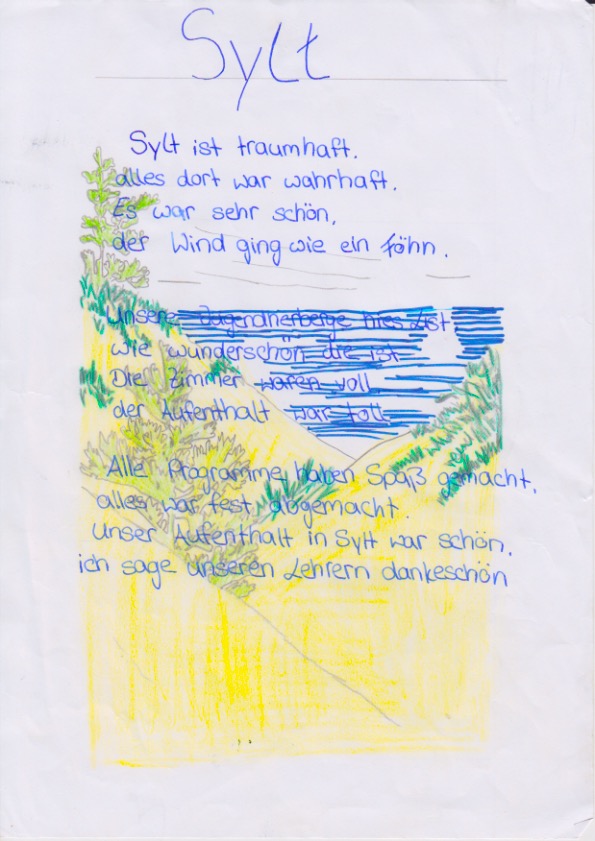 Sylt
Sylt ist traumhaft.
alles dort war wahrhaft.
Es war sehr schön,
der Wind ging wie ein föhn.
Unsere Jugendherberge hies List.
wie wunderschön die ist
Die Zimmer waren voll
der Aufenthalt war toll
Alle Programme haben Spaß gemacht,
alles war fest abgemacht.
Unser Aufenthalt in Sylt war schön,
ich sage unseren Lehrern dankeschön